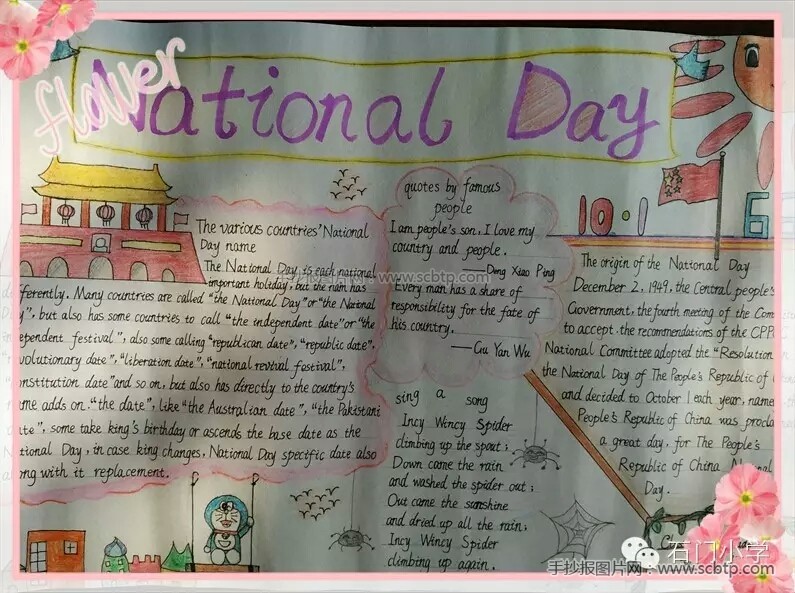 flower
National Day
The various countries' National
Day name
The National Day is each national
important holiday, but the rain has
fferently. Many countries are called "the National Day" or "the National
y", but also has some countries to call "the independent date" or "the
ependent festival", also some calling "republican date", "republic date",
volutionary date", "liberation date", "national revival fostival",
onstitution date" and so on, but also has directly to the country's
me adds on "the date", like "the Australian date", "the Pakistani
ate", some take king's birthday or ascends the base date as the
tional Day, in case king changes, National Day specific date also
ong with it replacement.
quotes by famous
people
I am people's son, I love my
country and people.
—Deng Xiao Ping
Every man has a share of
responsibility for the fate of
his country.
—Gu Yan Wu
sing a song
Incy Wincy Spider
climbing up the spout;
Down came the rain
and washed the spider out;
Out came the sunshine
and dried up all the rain;
Incy Wincy Spider
climbing up again.
10·1
6
The origin of the National Day
December 2, 1949, the Central people's
Government, the fourth meeting of the Com
to accept the recommendations of the CPP
National Committee adopted the "Resolution
the National Day of The People's Republic of
and decided to October 1 each year, name
People's Republic of China was procla
a great day, for The People's
Republic of China National
Day.
www.scbtp.com
石门小学
手抄报图片网:www.scbtp.com